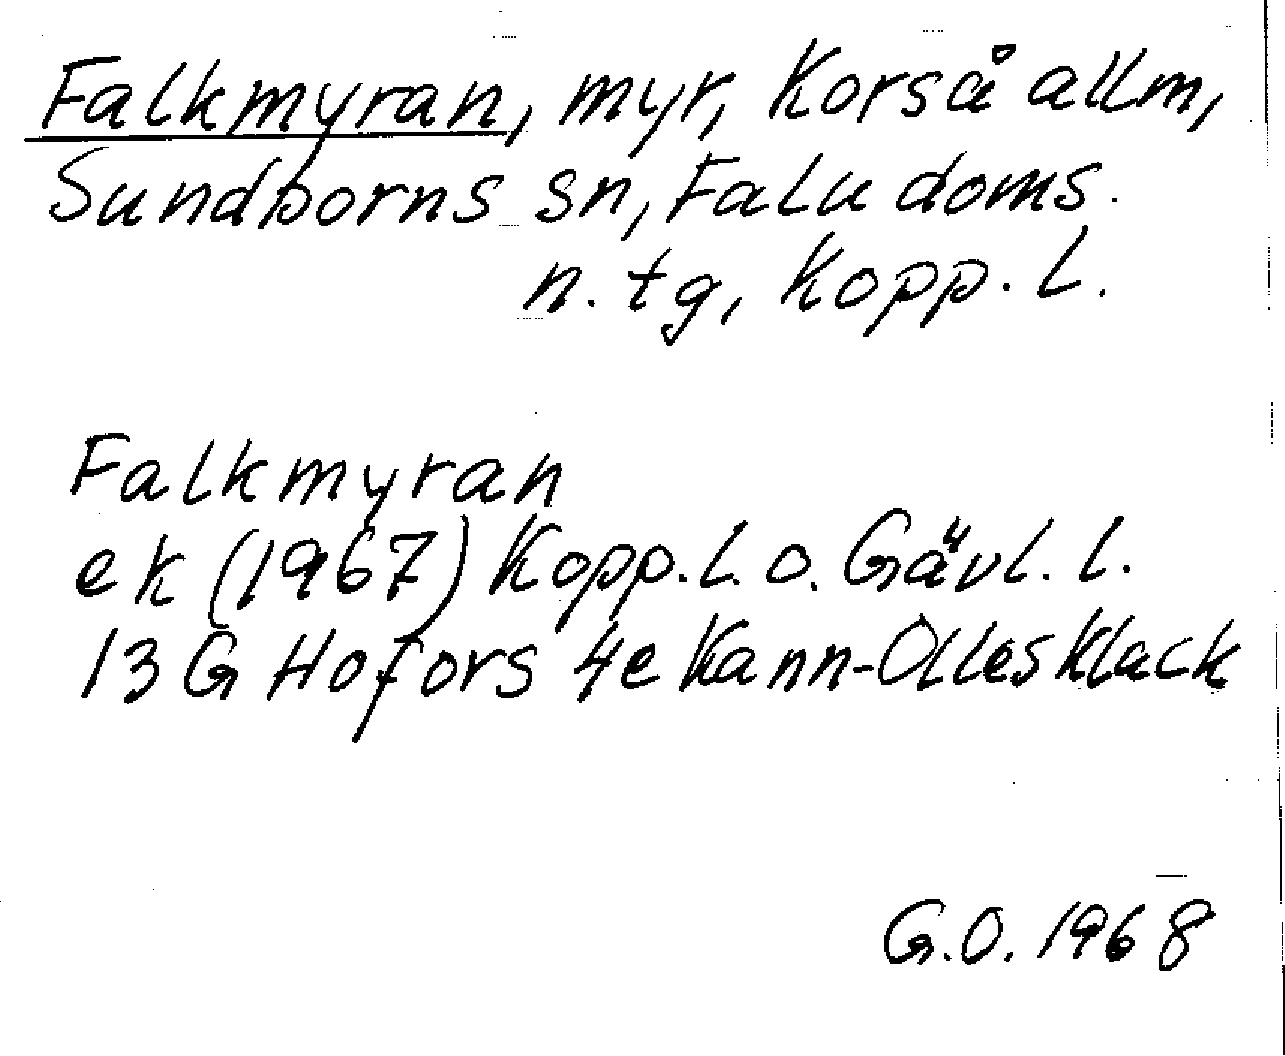 Falkmyran, myr, Korså allm,
Sundborns sn, Falu doms.
n. tg, Kopp. l.
Falkmyran
ek (1967) Kopp. l. o. Gävl. l.
13 G Hofors 4e Kann-Olles Klack
G.O. 1968